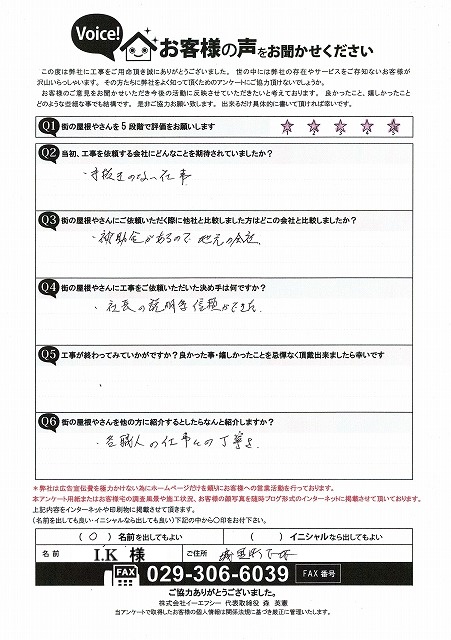 Voice!
お客様の声をお聞かせください
この度は弊社に工事をご用命頂き誠にありがとうございました。 世の中には弊社の存在やサービスをご存知ないお客様が
沢山いらっしゃいます。 その方たちに弊社をよく知って頂くためのアンケートにご協力頂けないでしょうか。
お客様のご意見をお聞かせいただき今後の活動に反映させていただきたいと考えております。 良かったこと、嬉しかったこと
どのような些細な事でも結構です。 是非ご協力お願い致します。 出来るだけ具体的に書いて頂ければ幸いです。
Q1 街の屋根やさんを5段階で評価をお願いします
1 2 3 4 5
Q2 当初、工事を依頼する会社にどんなことを期待されていましたか？
・手抜きのない仕事
Q3 街の屋根やさんにご依頼いただく際に他社と比較しました方はどこの会社と比較しましたか？
・補助金があるので 地元の会社.
Q4 街の屋根やさんに工事をご依頼いただいた決め手は何ですか？
・社長の説明等信頼ができた
Q5 工事が終わってみていかがですか？良かった事・嬉しかったことを忌憚なく頂戴出来ましたら幸いです
Q6 街の屋根やさんを他の方に紹介するとしたらなんと紹介しますか？
・各職人の仕事の丁寧さ
＊弊社は広告宣伝費を極力かけない為にホームページだけを頼りにお客様への営業活動を行っております。
本アンケート用紙またはお客様宅の調査風景や施工状況、お客様の顔写真を随時ブログ形式のインターネットに掲載させて頂いております。
上記内容をインターネットや印刷物に掲載させて頂きます。
(名前を出しても良い・イニシャルなら出しても良い)下記の中から○印をお付下さい。
( ○ ) 名前を出してもよい ( ) イニシャルなら出してもよい
名前 I.K 様 ご住所
FAX 029-306-6039 FAX番号
ご協力ありがとうございました。
株式会社イーエフシー 代表取締役 森 英憲
当アンケートで取得したお客様の個人情報は関係法規に基づき厳正に管理いたします。